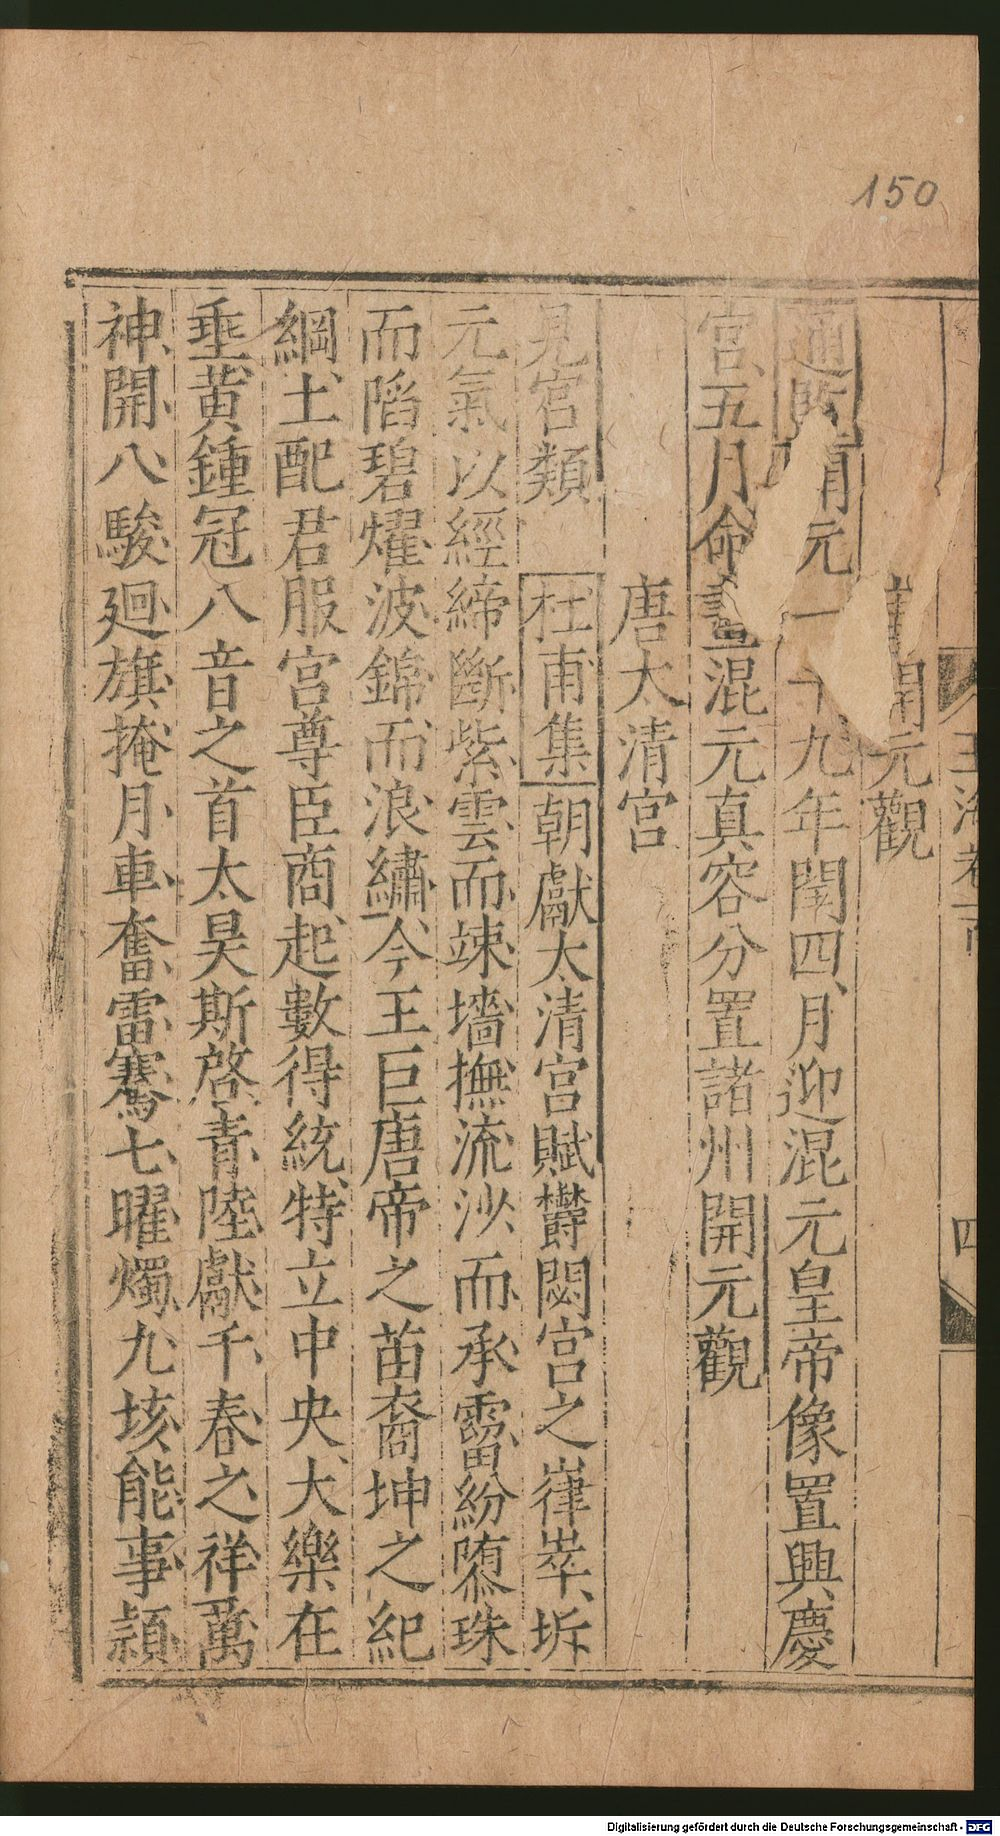 150
玉海卷一百
四
開元觀
通開元二十九年閏四月迎混元皇帝像置興慶
宮五月命畫混元真容分置諸州開元觀
唐太清宮
見宮類 杜甫集朝獻太清宮賦欝閟宮之嵂崒坼
元氣以經緯斷紫雲而竦墻撫流沙而承霤紛墮珠
而陷碧燿波錦而浪繡今王巨唐帝之苗裔坤之紀
綱土配君服宮尊臣商起數得統特立中央大樂在
垂黄鍾冠八音之首太昊斯啓青陸獻千春之祥萬
神開八駿廻旗掩月車奮雷騫七曜燭九垓能事潁
Digitalisierung gefördert durch die Deutsche Forschungsgemeinschaft - DFG